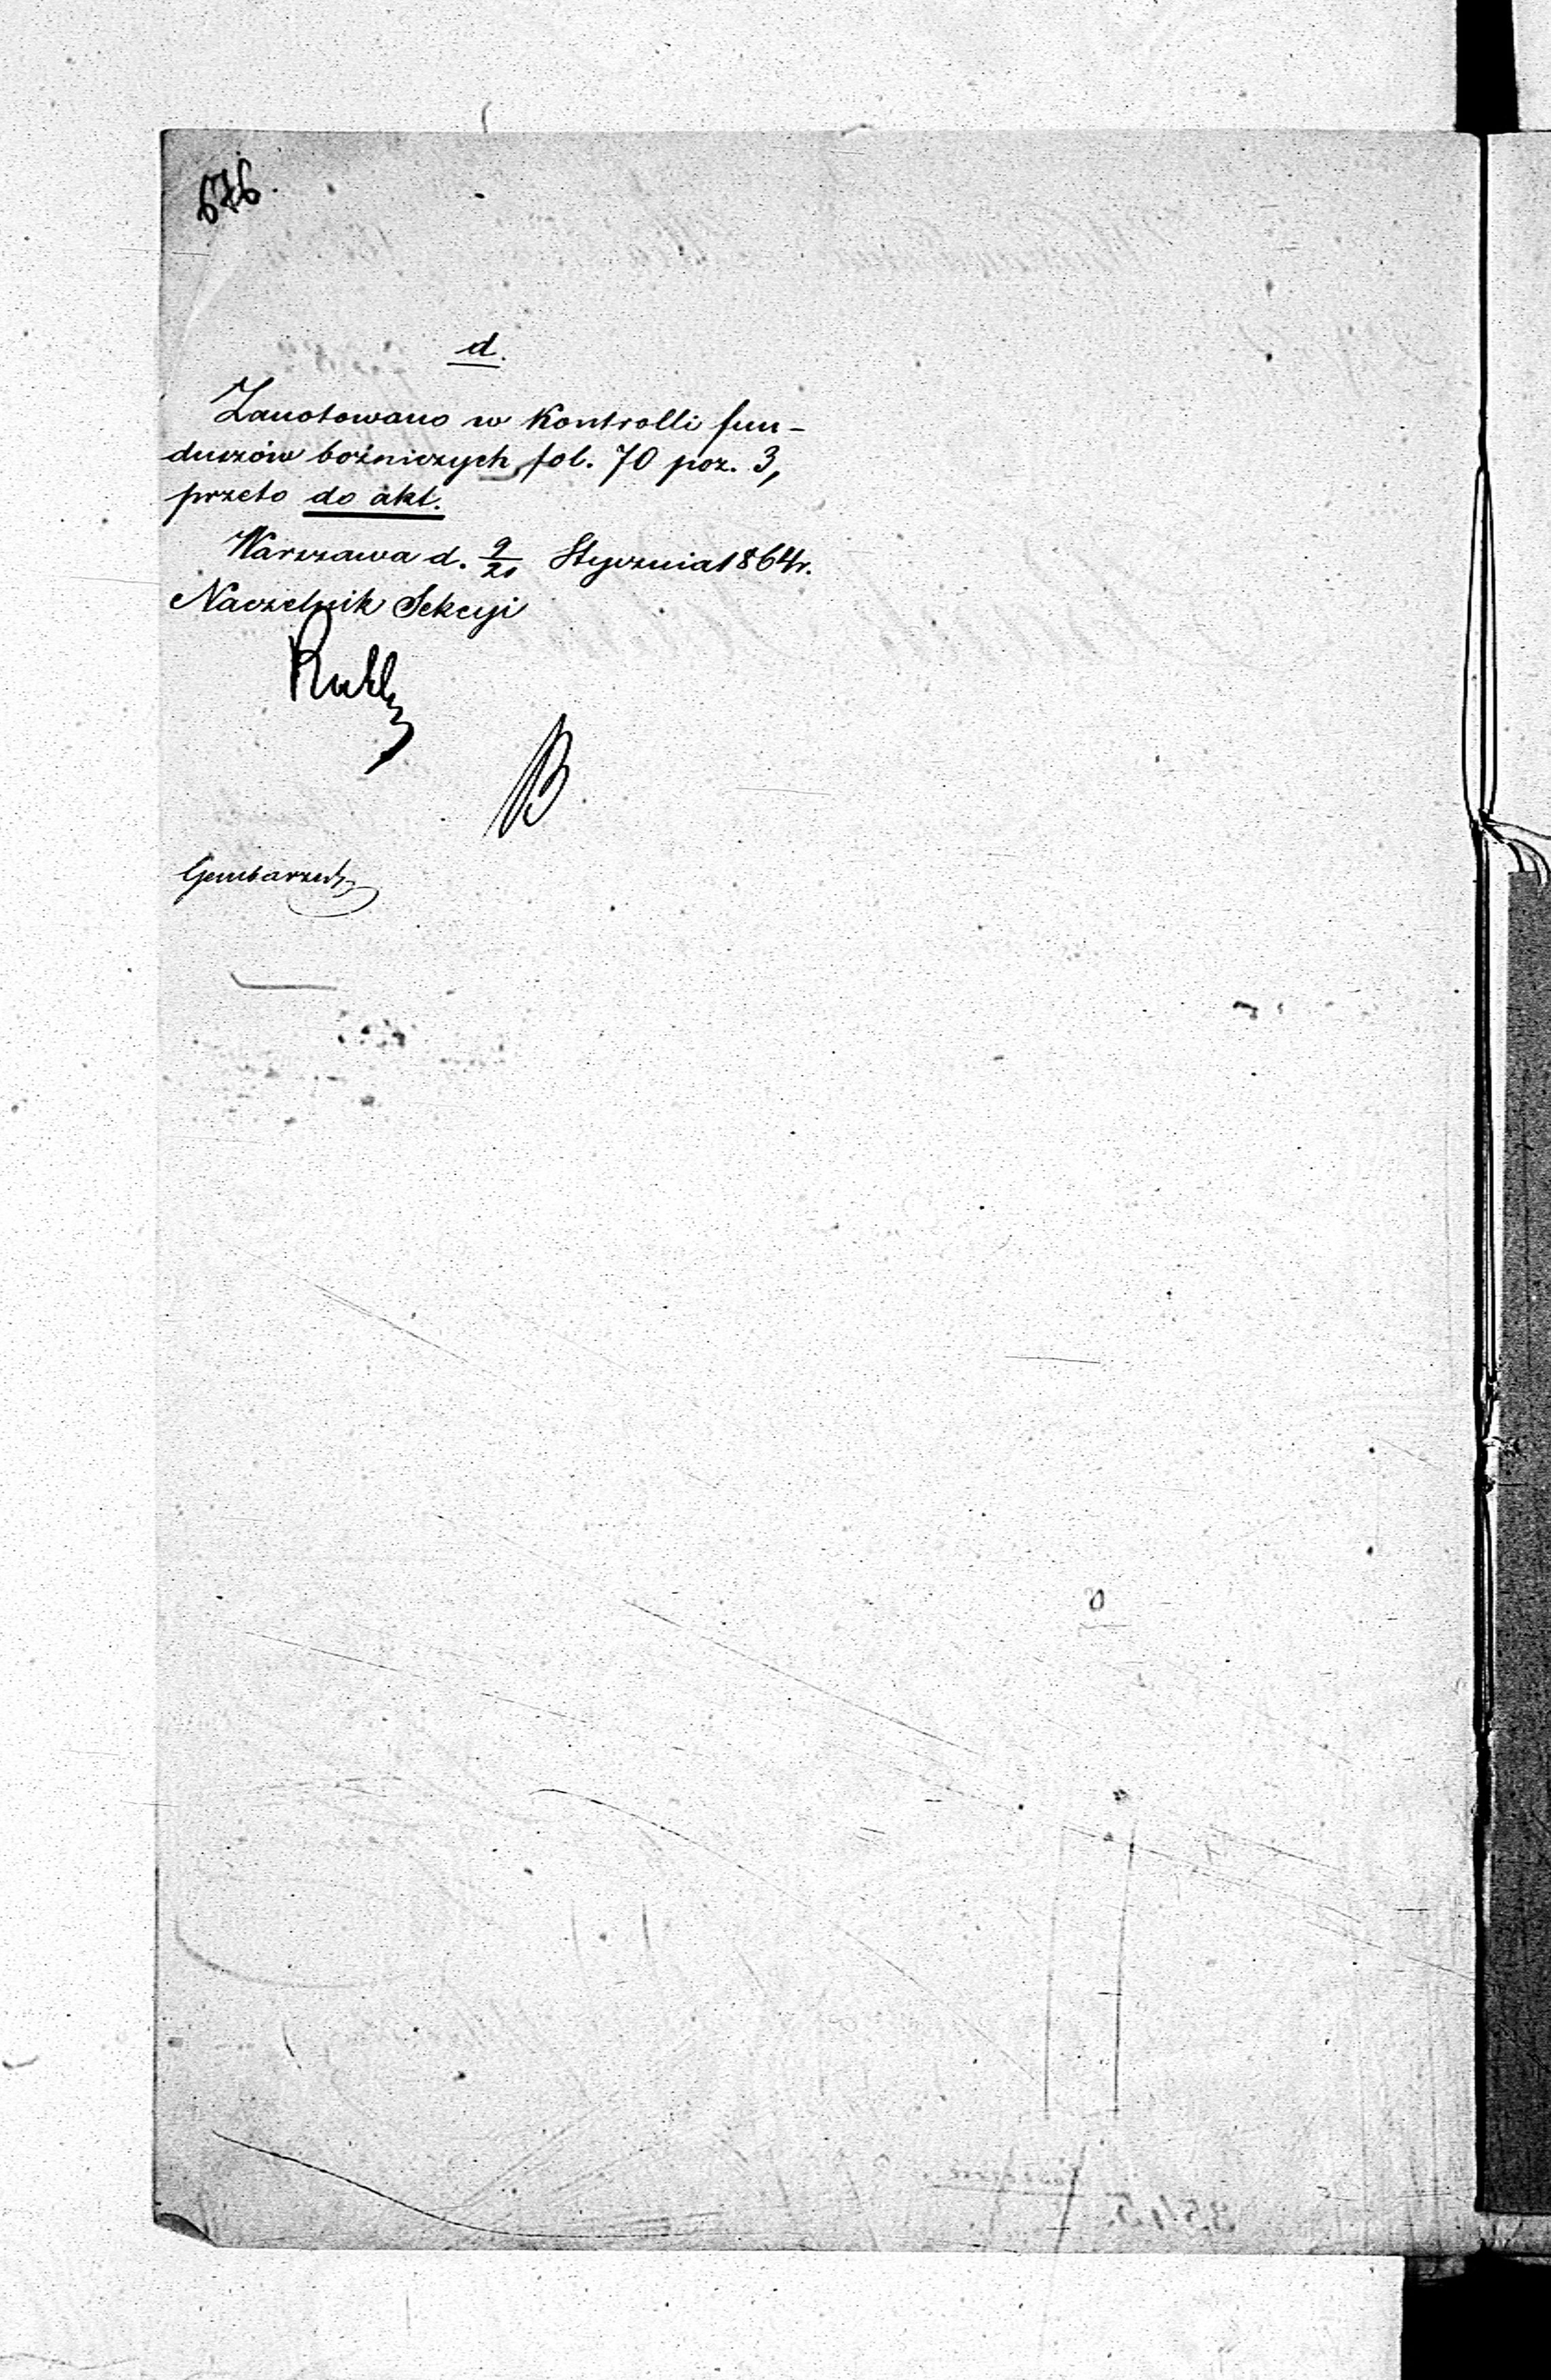 676.
d.
Zanotowano w Kontrolli fun-
duszów bożniczych fol. 70 poz. 3,
przeto do akt.
Warszawa d. 9/20 Stycznia 1864 r.
Naczelnik Sekcyi
B